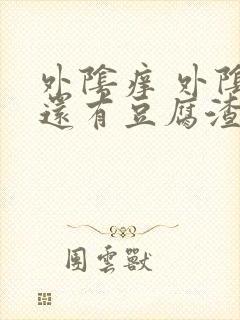 外陰癢 外陰
還有豆腐渣
團雲獸